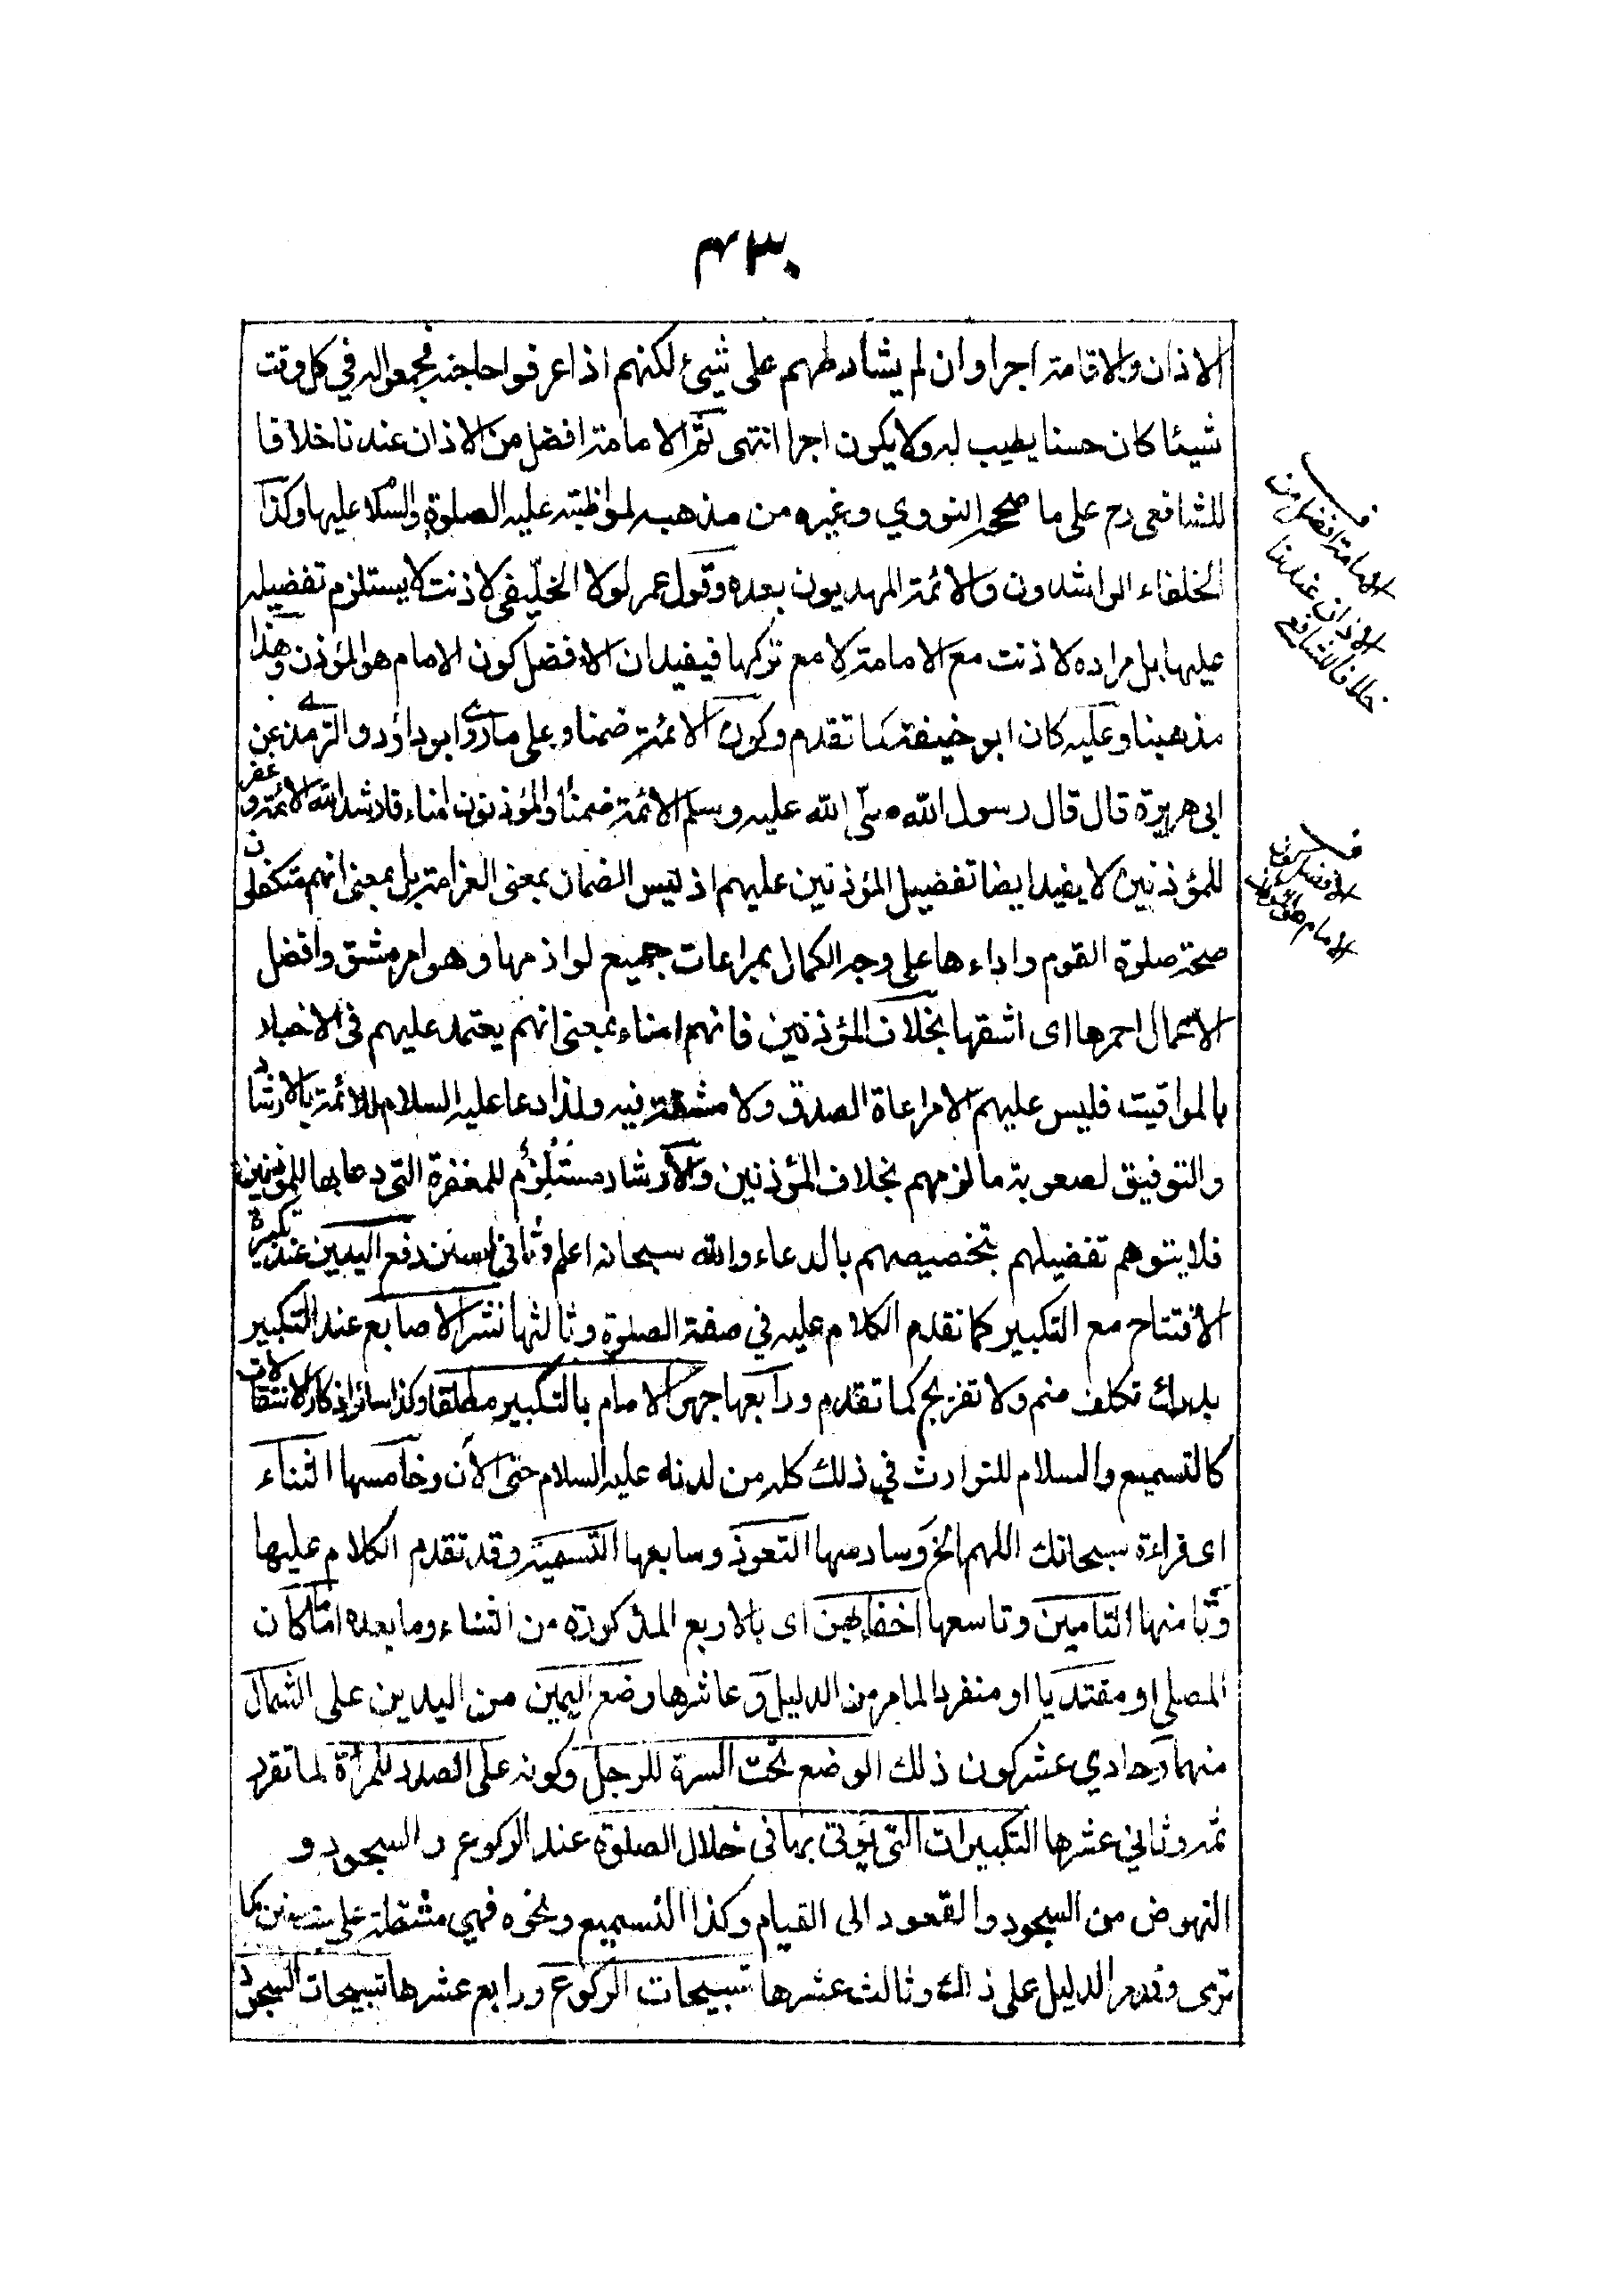 ٤٣٠
الاذان والاقامة اجرا وان لم يشارطهم على شيئ لكنهم اذا عرفوا حاجته فجمعوا له في كل وقت
شيئا كان حسنا يطيب له ولا يكون اجرا انتهى ثم الامامة افضل من الاذان عندنا خلافا
للشافعي رح على ما صححه النووي وغيره من مذهبه لمواظبته عليه الصلوة والسلام عليها وكذا
الخلفاء الراشدون والائمة المهديون بعده وقول عمر لولا الخليفى لاذنت لا يستلزم تفضيله
عليها بل مراده لاذنت مع الامامة لا مع تركها فيفيد ان الافضل كون الامام هو المؤذن وهذا
مذهبنا وعليه كان ابو حنيفة كما تقدم وكون الائمة ضمنا وعلى ما روى ابو داؤد والترمذي عن
ابى هريرة قال قال رسول الله صلى الله عليه وسلم الائمة ضمنا والمؤذنون امناء فارشد الله الائمة وغفر
للمؤذنين لا يفيد ايضا تفضيل المؤذنين عليهم اذ ليس الضمان بمعنى الغرامة بل بمعنى انهم متكفلون
صحة صلوة القوم واداءها على وجه الكمال بمراعات جميع لوازمها وهو امر مشق وافضل
الاعمال احمزها اى اشقها بخلاف المؤذنين فانهم امناء بمعنى انهم يعتمد عليهم فى الاخبار
بالمواقيت فليس عليهم الا مراعاة الصدق ولا مشقة فيه ولذا دعا عليه السلام للائمة بالارشاد
والتوفيق لصعوبة ما لزمهم بخلاف المؤذنين والارشاد مستلزم للمغفرة التى دعا بها للمؤذنين
فلا يتوهم تفضيلهم بتخصيصهم بالدعاء والله سبحانه اعلم وثاني السنن رفع اليدين عند تكبيرة
الافتتاح مع التكبير كما تقدم الكلام عليه في صفة الصلوة وثالثها نشر الاصابع عند التكبير
بلا تكلف ضم ولا تفريج كما تقدم ورابعها جهر الامام بالتكبير مطلقا وكذا سائر اذكار الانتقالات
كالتسميع والسلام للتوارث في ذلك كله من لدنه عليه السلام حتى الآن وخامسها الثناء
اى قراءة سبحانك اللهم الخ وسادسها التعوذ وسابعها التسمية وقد تقدم الكلام عليها
وثامنها التامين وتاسعها اخفاءهن اى بالاربع المذكورة من الثناء وما بعده اماما كان
المصلي او مقتديا او منفردا لما مر من الدليل وعاشرها وضع اليمين من اليدين على الشمال
منهما وحادي عشر كون ذلك الوضع تحت السرة للرجل وكونه على الصدر للمرأة لما تقرر
ثمه وثاني عشرها التكبيرات التى يؤتى بها فى خلال الصلوة عند الركوع والسجود و
النهوض من السجود والقعود الى القيام وكذا التسميع ونحوه فهي مشتملة على سنن كما
ترى وقد مر الدليل على ذلك وثالث عشرها تسبيحات الركوع ورابع عشرها تسبيحات السجود
الامامة افضل من
الاذان عندنا
خلافا للشافعي
الافضل كون
الامام هو المؤذن